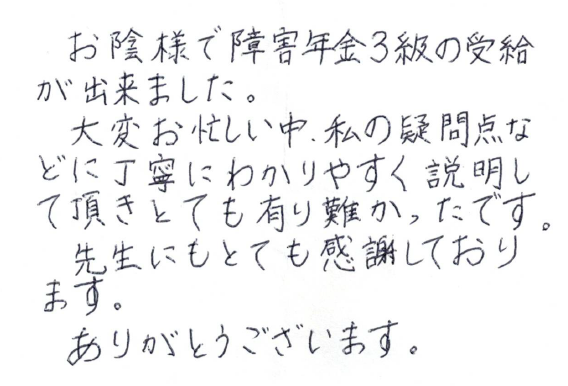 お陰様で障害年金3級の受給
が出来ました。
大変お忙しい中、私の疑問点な
どに丁寧にわかりやすく説明し
て頂きとても有り難かったです。
先生にもとても感謝しており
ます。
ありがとうございます。